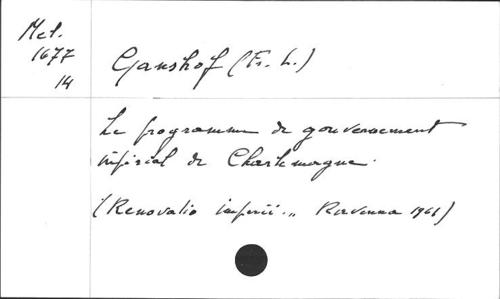 Mel.
1677
14
Ganshof (Fr. L.)
Le programme de gouvernement
impérial de Charlemagne.
(Renovatio imperii... Ravenna 1961)